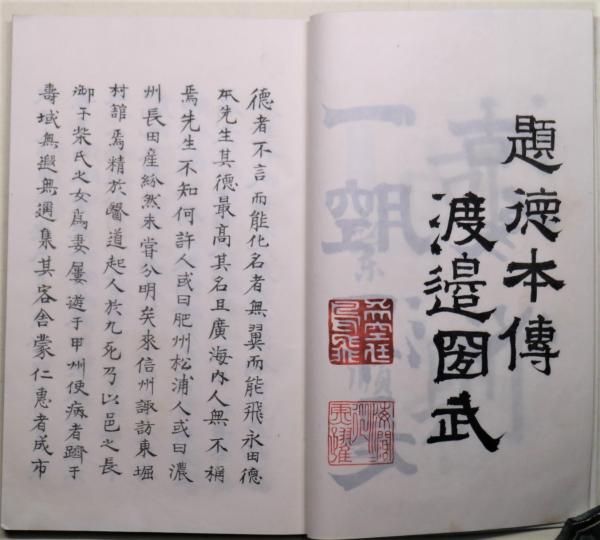 題徳本傳
渡邉圀武
天空任鳥飛
海濶従魚躍
德者不言而能化名者無翼而能飛永田德
夲先生其德最高其名且廣海內人無不稱
焉先生不知何許人或曰肥州松浦人或曰濃
州長田産紛然未嘗分明矣來信州諏訪東堀
村舘焉精於醫道起人於九死乃以邑之長
御子柴氏之女爲妻屢遊于甲州使病者躋于
壽域無遐無邇集其客舎蒙仁惠者成市